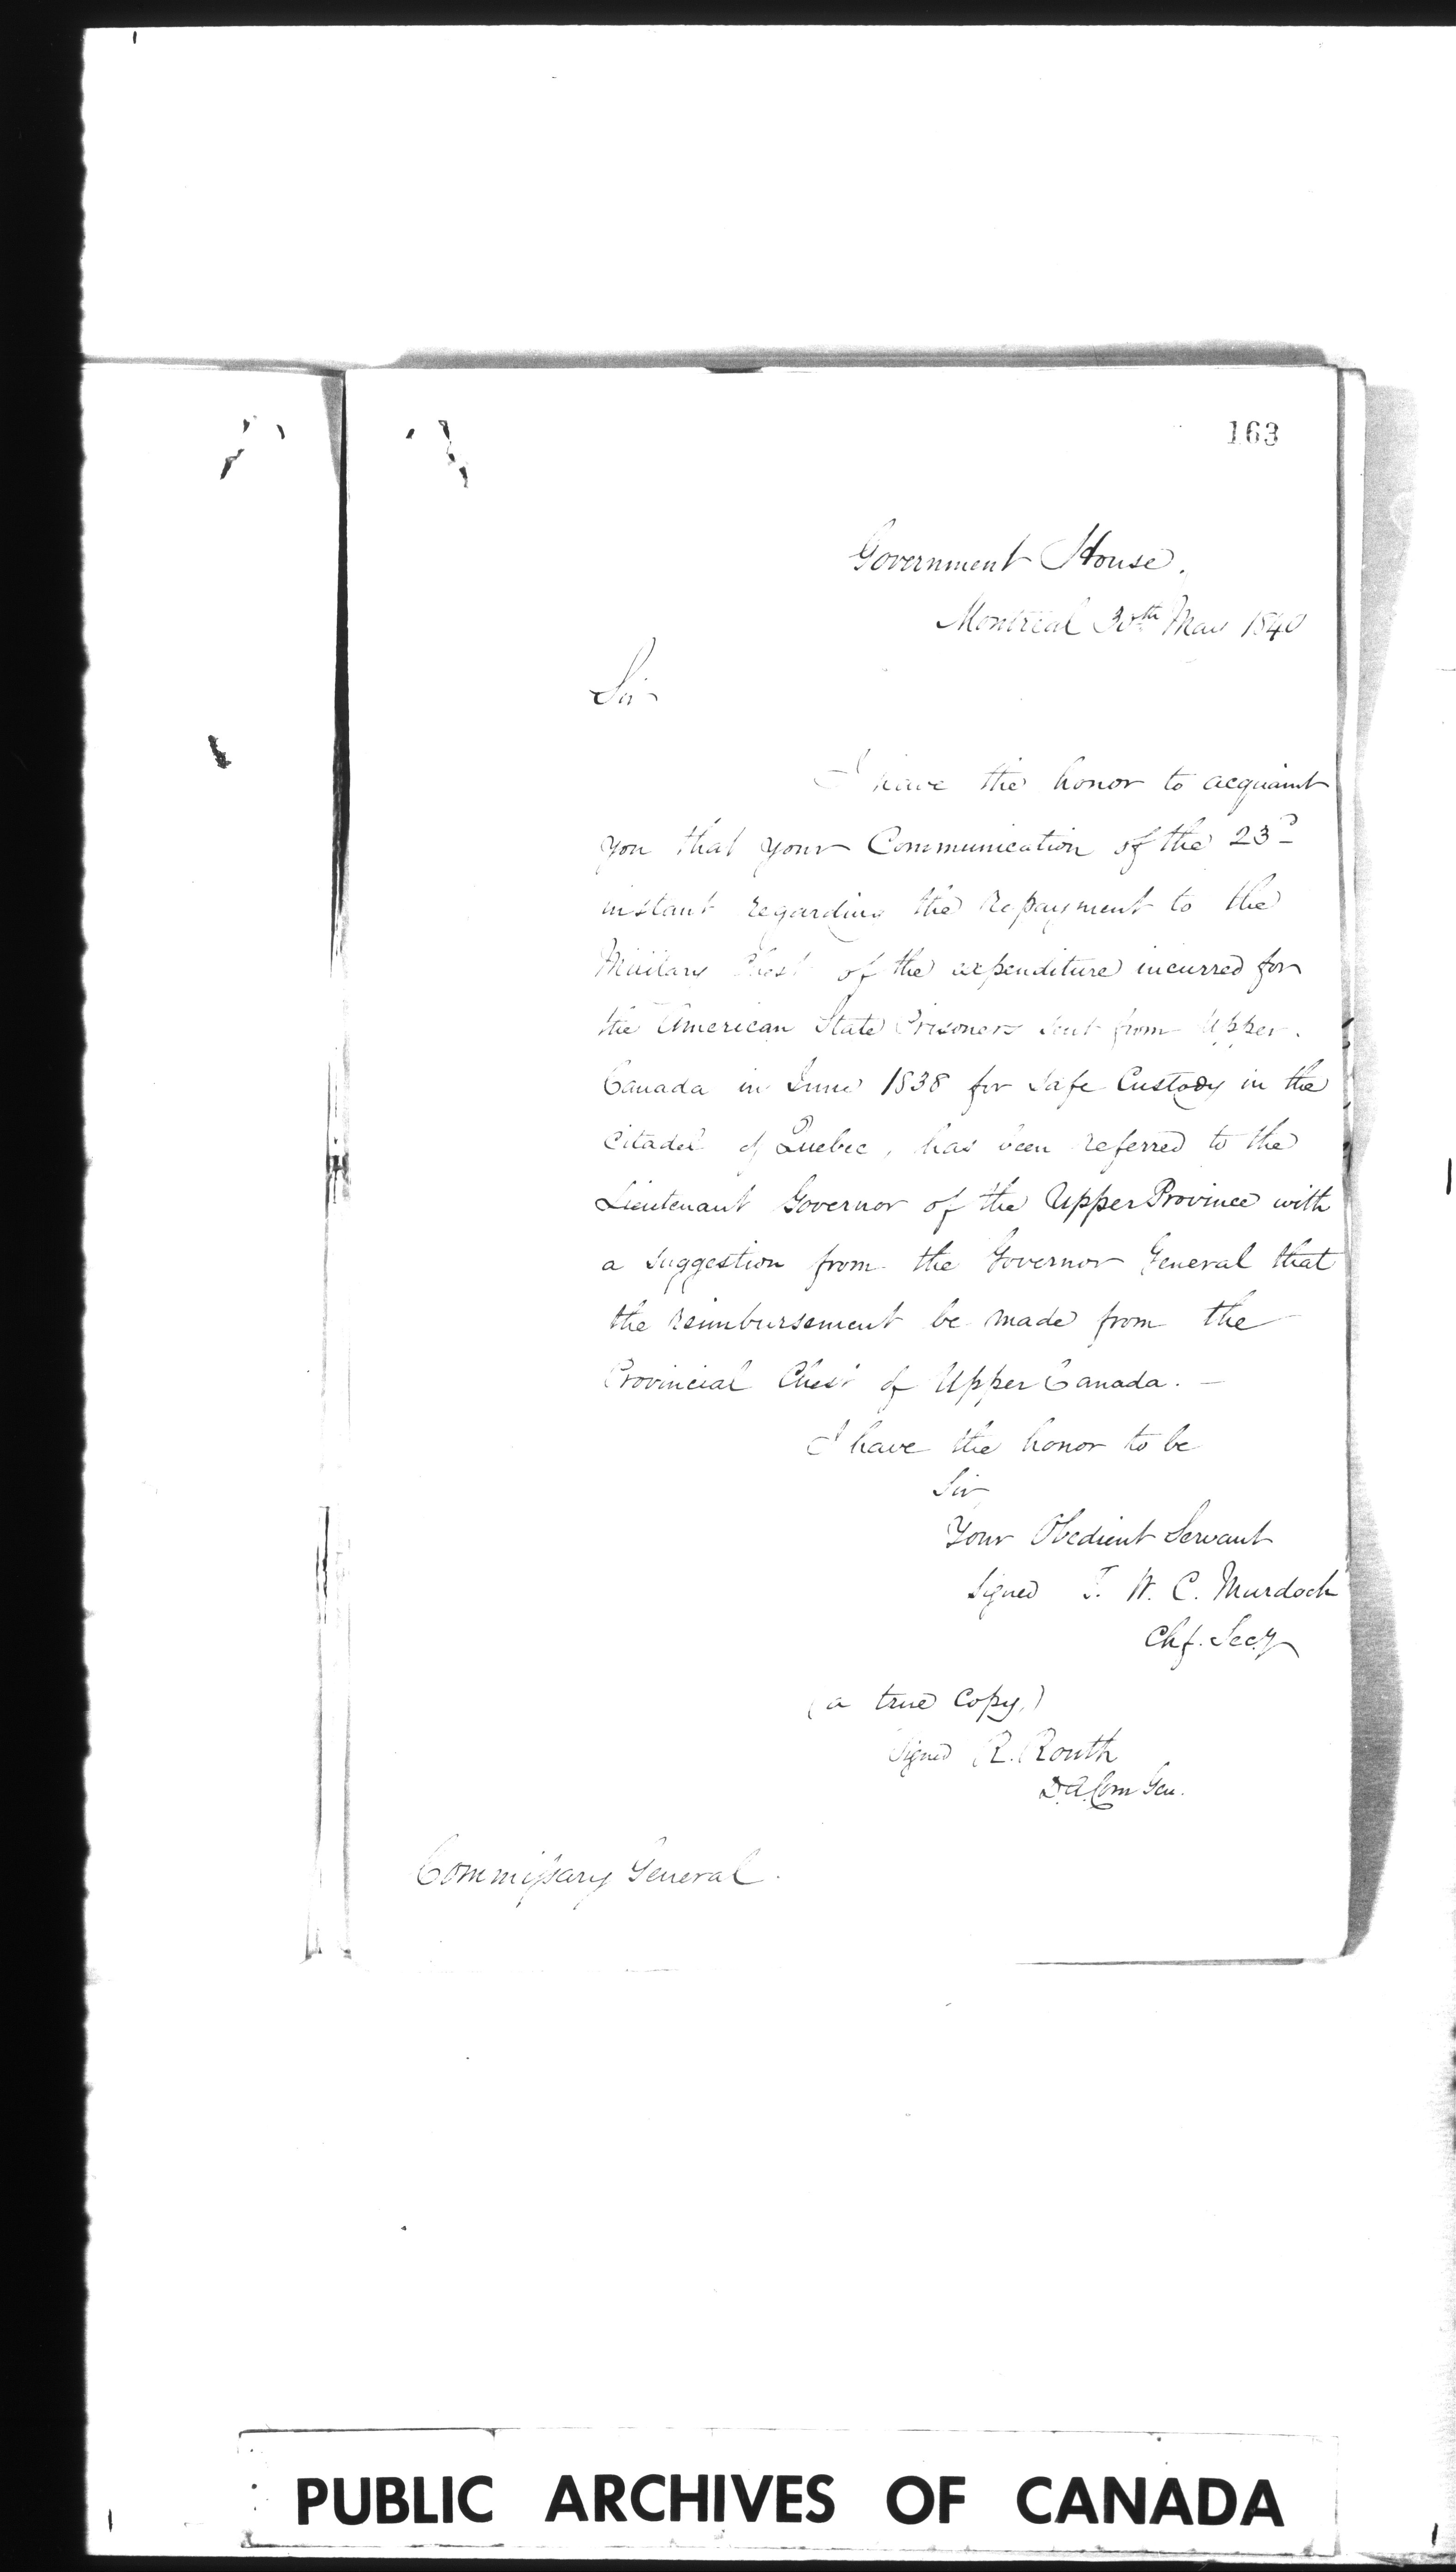 163
Government House.
Montreal 30th May 1840
Sir
I have the honor to acquaint
you that your Communication of the 23d
instant regarding the Repayment to the
Military Chest of the expenditure incurred for
the American State Prisoners sent from Upper
Canada in June 1838 for Safe Custody in the
Citadel of Quebec, has been referred to the
Lieutenant Governor of the Upper Province with
a suggestion from the Governor General that
the reimbursement be made from the
Provincial Chest of Upper Canada. —
I have the honor to be
Sir
Your Obedient Servant
Signed T. W. C. Murdoch
Chf. Secy
(a true Copy,)
Signed R. Routh
D.A. Com Gen.
Commissary General.
PUBLIC ARCHIVES OF CANADA